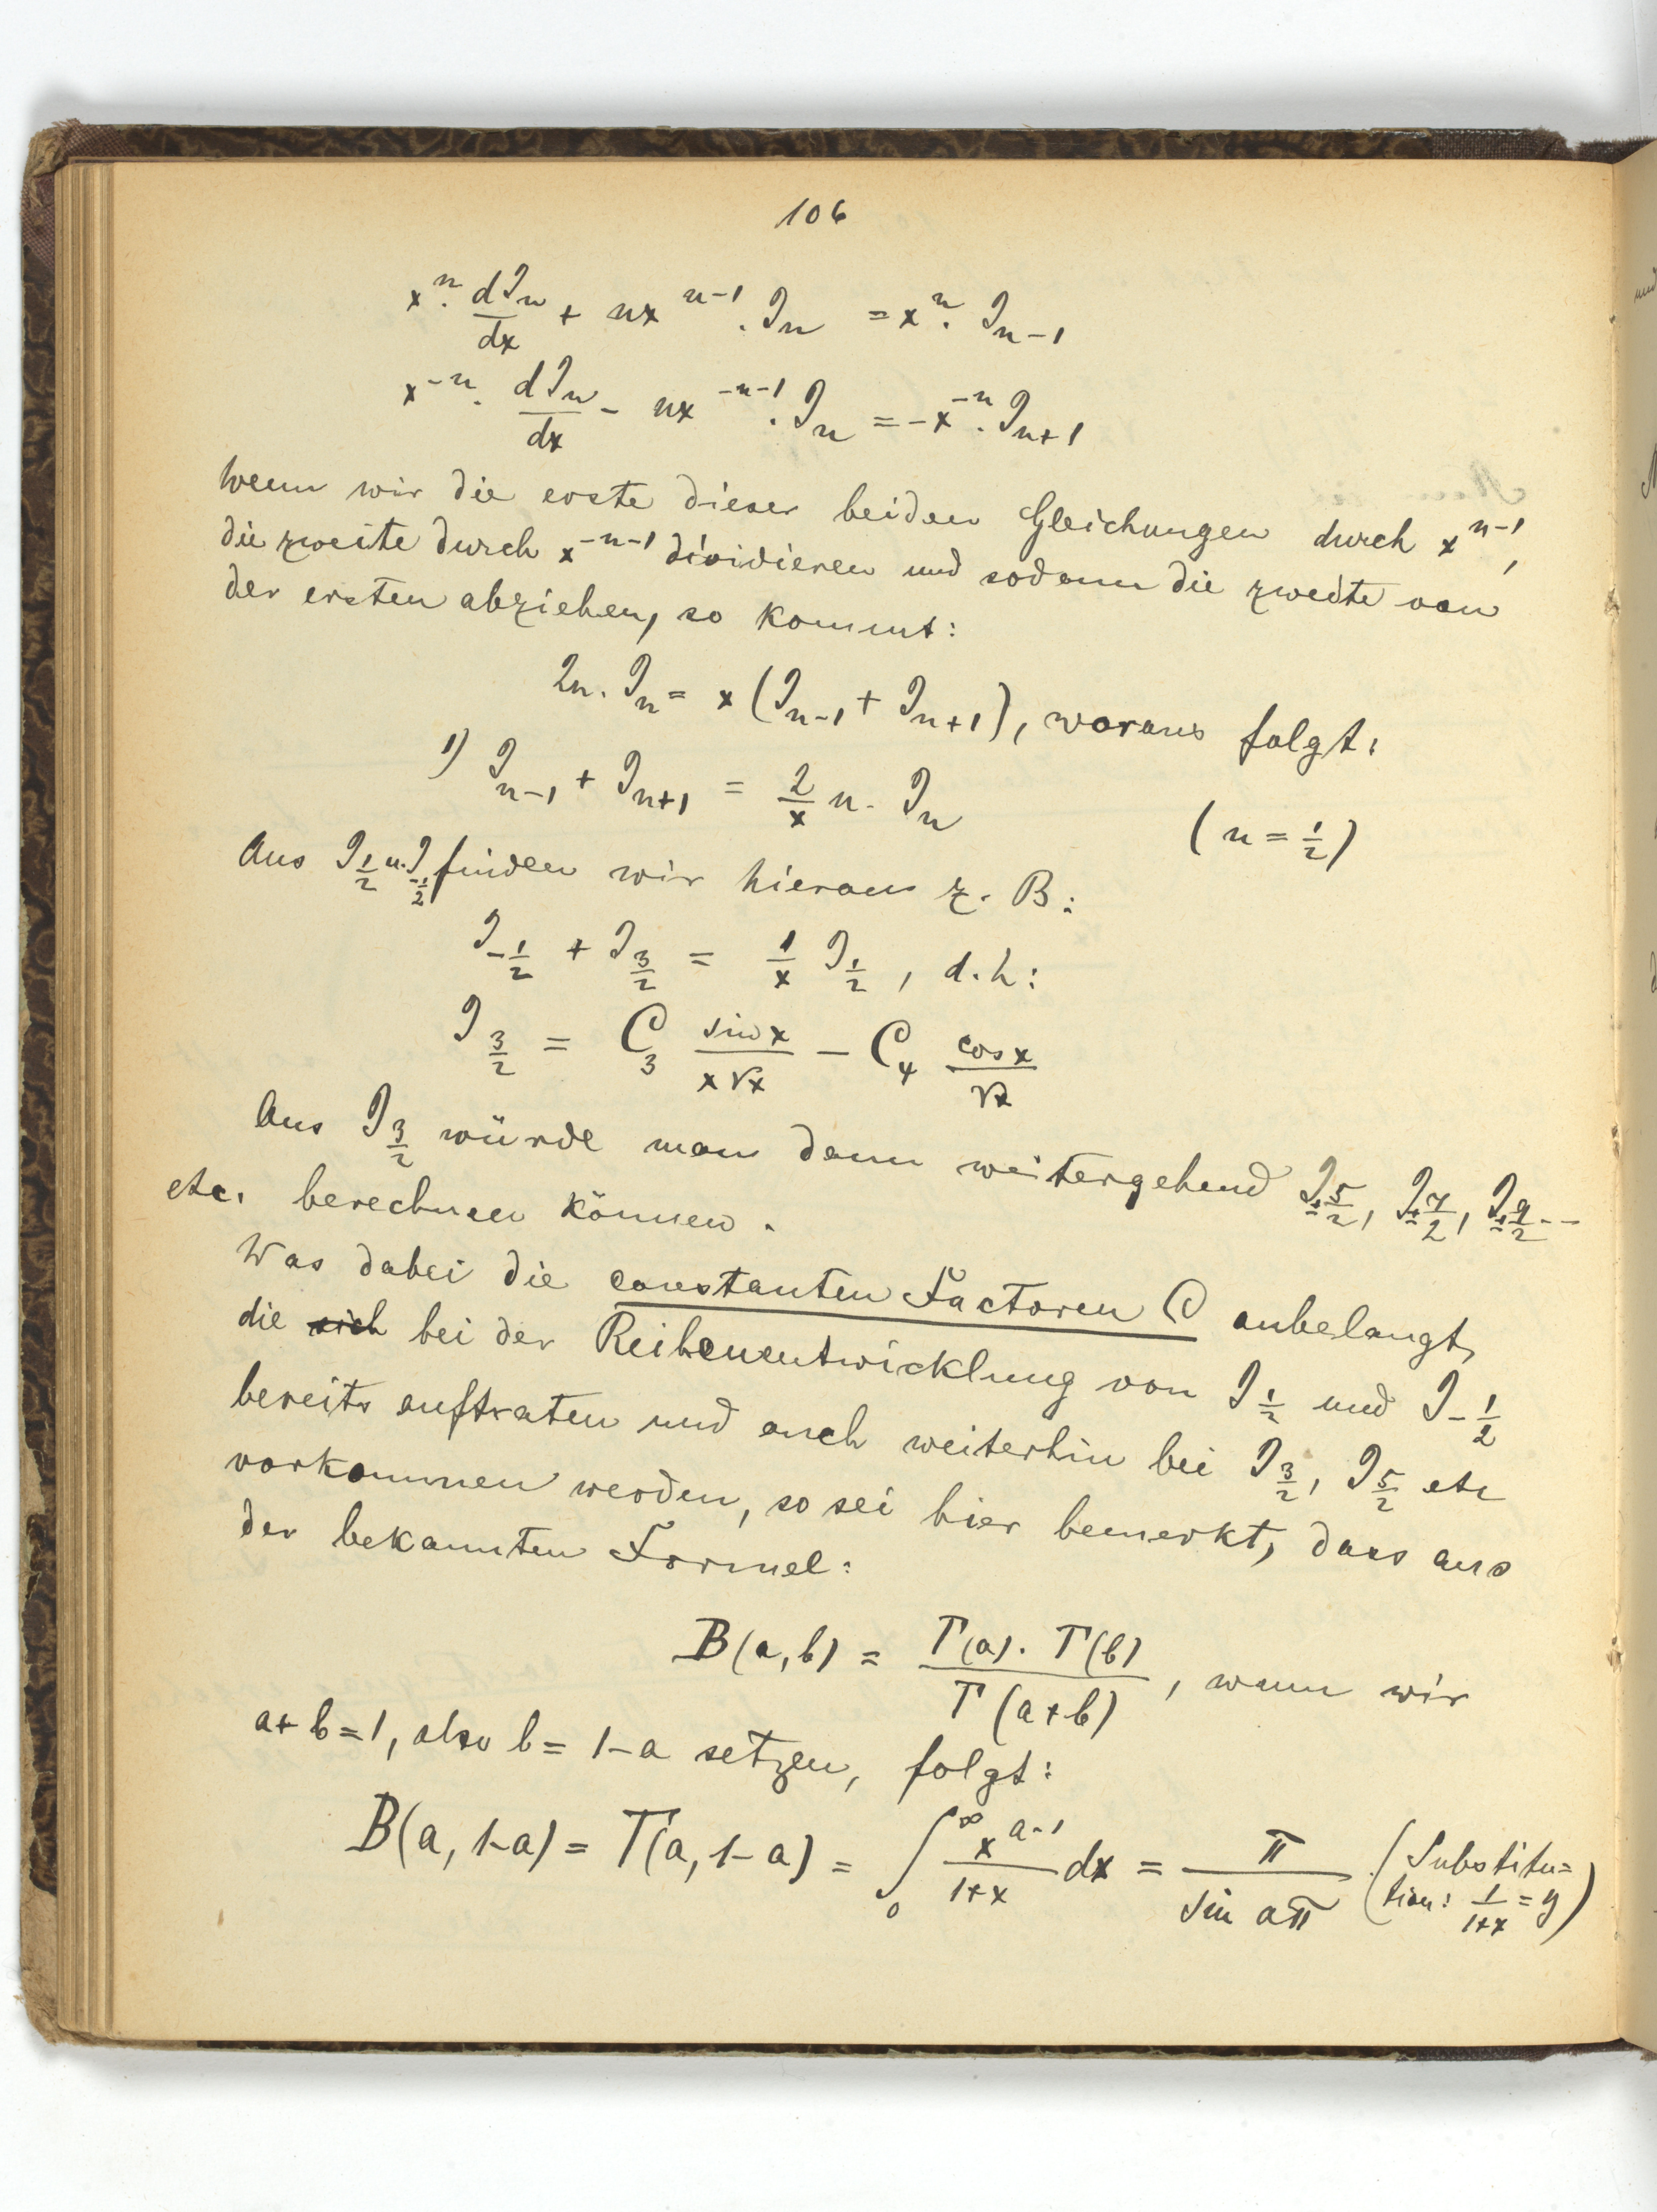 106
x^n · dJ_n/dx + nx^{n-1} · J_n = x^n · J_{n-1}
x^{-n} · dJ_n/dx - nx^{-n-1} · J_n = -x^{-n} · J_{n+1}
Wenn wir die erste dieser beiden Gleichungen durch x^{n-1},
die zweite durch x^{-n-1} dividieren und sodann die zweite von
der ersten abziehen, so kommt:
2n · J_n = x (J_{n-1} + J_{n+1}), woraus folgt:
1) J_{n-1} + J_{n+1} = 2/x n · J_n
(n = 1/2)
Aus J_{1/2} u. J_{-1/2} finden wir hieraus z. B:
J_{-1/2} + J_{3/2} = 1/x J_{1/2}, d. h:
J_{3/2} = C_3 sin x/(x√x) - C_4 cos x/√x
Aus J_{3/2} würde man dann weitergehend J_{±5/2}, J_{±7/2}, J_{±9/2} --
etc. berechnen können.
Was dabei die constanten Factoren C anbelangt,
die sich bei der Reihenentwicklung von J_{1/2} und J_{-1/2}
bereits auftraten und auch weiterhin bei J_{3/2}, J_{5/2} etc
vorkommen werden, so sei hier bemerkt, dass aus
der bekannten Formel:
B(a,b) = Γ(a) · Γ(b)/Γ(a+b), wenn wir
a+b=1, also b = 1-a setzen, folgt:
B(a, 1-a) = Γ(a, 1-a) = ∫_0^∞ x^{a-1}/(1+x) dx = π/sin aπ (Substitu=
tion: 1/(1+x) = y)